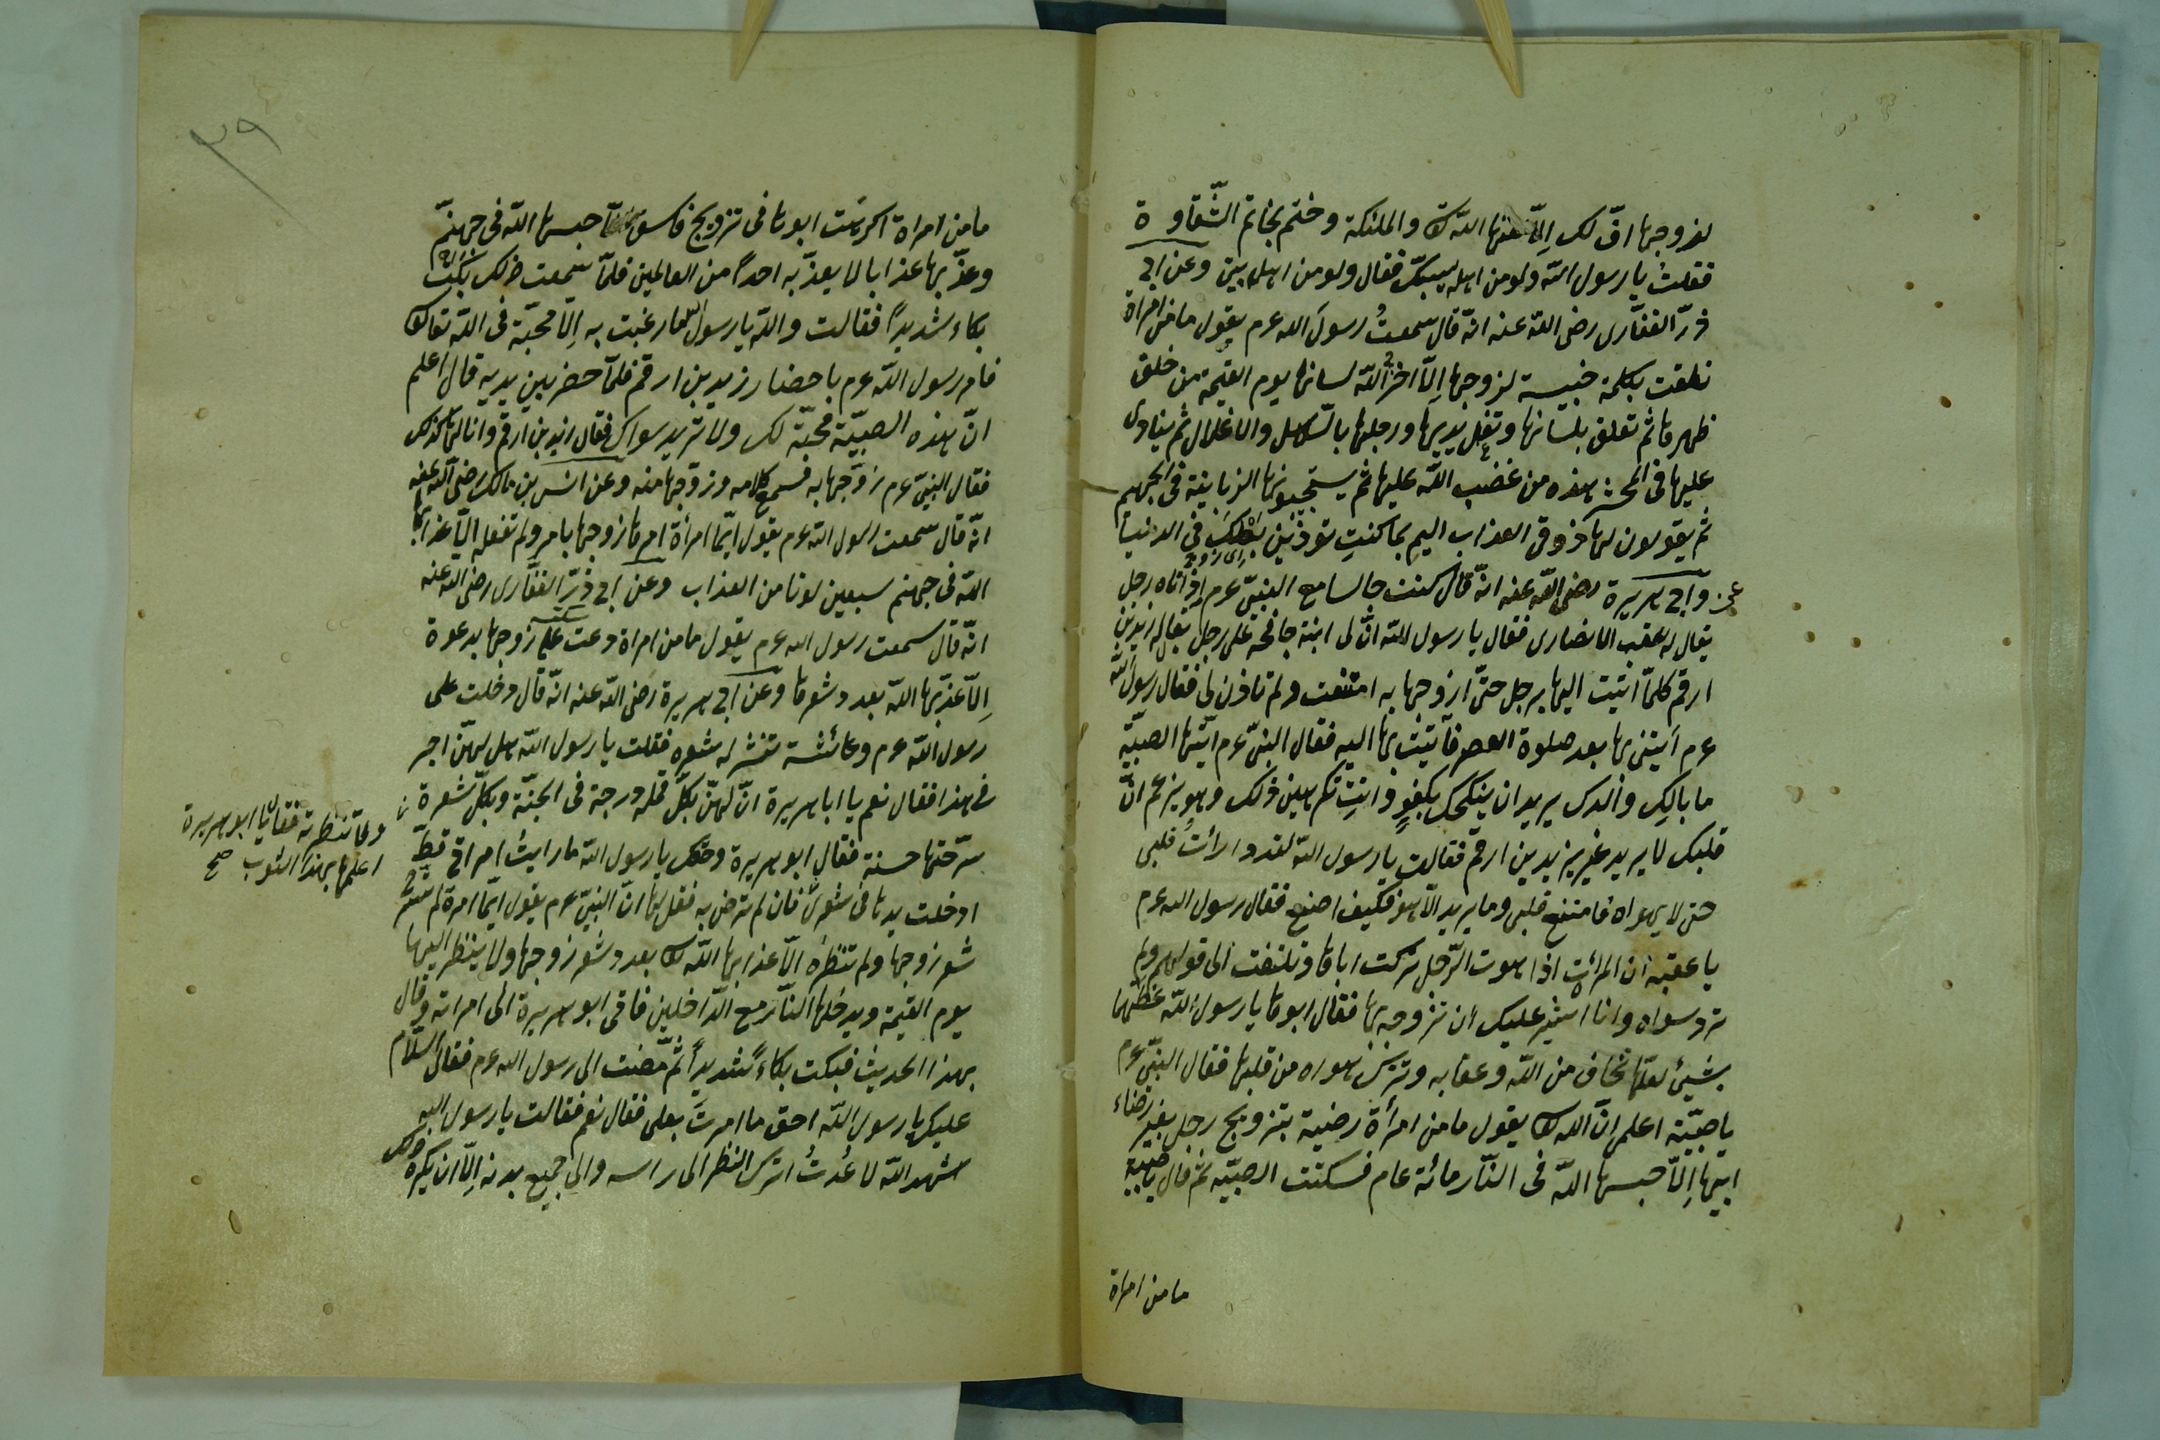 لزوجها افّ لك إلّا لعنها الله تع والملئكة وختم بخاتم الشّقاوة
فقلتُ يا رسول الله ولو من اهل بيتك فقال ولو من اهل بيتى وعن ابى
ذرّ الغفّارى رضى الله عنه انّه قال سمعتُ رسول الله عرم يقول ما من امراة
نطقت بكلمة خبيثة لزوجها إلّا اخرّ الله لسانها يوم القيمة من خلق
ظهرها ثم تعلق بلسانها وتغل يديها ورجلها بالسّلاسل والاغلال ثم ينادى
عليها فى المحشر هذه من غضب الله عليها ثم يستجبونها الزبانية فى الجهنم
ثم يقولون لها ذوقى العذاب اليم بما كنتِ توذين بعلك فى الدنيا
اى زوج
عن وابى هريرة رضى الله عنه انّه قال كنت جالسا مع النبىّ عرم إذ أتاه رجل
يقال له عقبة الانصارى فقال يا رسول الله انّ لى ابنة على رجل يقال له زيد بن
ارقم كلّما أتيت اليها برجل حتّى ازوجها به امتنعت ولم تاذن لى فقال رسول الله
عرم أيتنى بها بعد صلوة العصر فأتيت بها اليه فقال النبىّ عرم ايّتها الصبيّة
ما بالكِ والدك يريد ان ينكحك بكفوٍ وانتِ تكرهين ذلك وهو يزعم انّ
قلبك لا يريد غير زيد بن ارقم فقالت يا رسول الله لقد قلبى
حتى لا يهواه فامتنع قلبى وما يريد الّا هو فكيف اصنع فقال رسول الله عرم
يا عقبة انّ المرأت اذا هوت الرّجل تركت اباها وتلتفت الى قولهم ولم
ترد سواه وانا اشير عليك ان تزوجه بها فقال ابوها يا رسول الله عظها
بشيئ لعلّها تخاف من الله وعقابه وتترك هواه من قلبها فقال النبىّ عرم
يا صبيّة اعلمى انّ الله تع يقول ما من امرأة رضية بتزويج رجل بغير رضاء
ابيها إلّا حبسها الله فى النّار مائة عام فسكتت الصبيّة ثم قال يا صبية
ما من امراة
٣٩
ما من امراة اكرهت ابوها فى تزويج فاسق حبسها الله فى جهنّم
وعذّبها عذابا لا يعذّبه احداً من العالمين فلمّا سمعت ذلك بكت
بكاء شديداً فقالت والله يا رسول الله ما رغبت به إلّا محبّة فى الله تعالى
فامر رسول الله عرم باحضار زيد بن ارقم فلمّا حضر بين يديه قال اعلم
انّ هذه الصبيّة محبّة لك ولا تريد سواك فقال زيد بن ارقم وانا لها كذلك
فقال النبىّ عرم زوّجها به فسمع كلامه وزوّجها منه وعن انس بن مالك رضى الله عنه
انّه قال سمعت رسول الله عرم يقول ايّما امرأة امرها زوجها بامر ولم تفعله إلّا عذّبها
الله فى جهنم سبعين لونا من العذاب وعن ابى ذرّ الغفّارى رضى الله عنه
انّه قال سمعت رسول الله عرم يقول ما من امراة دعت على زوجها بدعوة
إلّا عذّبها الله بعدد شعرها وعن ابى هريرة رضى الله عنه انّه قال دخلت على
رسول الله عرم وعائشة تنشر له شعره فقلت يا رسول الله هل لهنّ اجر
فى هذا فقال نعم يا ابا هريرة انّ لهنّ بكلّ قملة درجة فى الجنّة وبكلّ شعرة
سرّحتها حسنة فقال ابو هريرة وحقّك يا رسول الله ما رايتُ امراتى قطّ
ادخلت يدها فى شعرى فان لم ترض به فقل لها انّ النبىّ عرم يقول ايّما امرة لم تسرح
شعر زوجها ولم تنظره الّا عذّبها الله تع بعدد شعر زوجها ولا ينظر اليها
يوم القيمة ويدخلها النّار مع الدّاخلين فاتى ابو هريرة الى امراته وقال
بهذا الحديث فبكت بكاءً شديداً ثمّ مضت الى رسول الله عرم فقال السّلام
عليك يا رسول الله احق ما امرتَ بعلى فقال نعم فقالت يا رسول الله
اشهد الله لا عُدتُ اترك النظر الى راسه والى جميع بدنه إلّا ان يكره
وما تنظرته فقال يا ابو هريرة
اعلمها بهذا الثوب صح